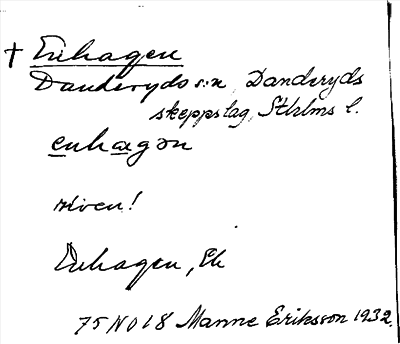 † Enhagen
Danderyds sn, Danderyds
skeppslag, Sthlms l.
enhagən
riven!
Enhagen, Ek
75 NO 18 Manne Eriksson 1932.